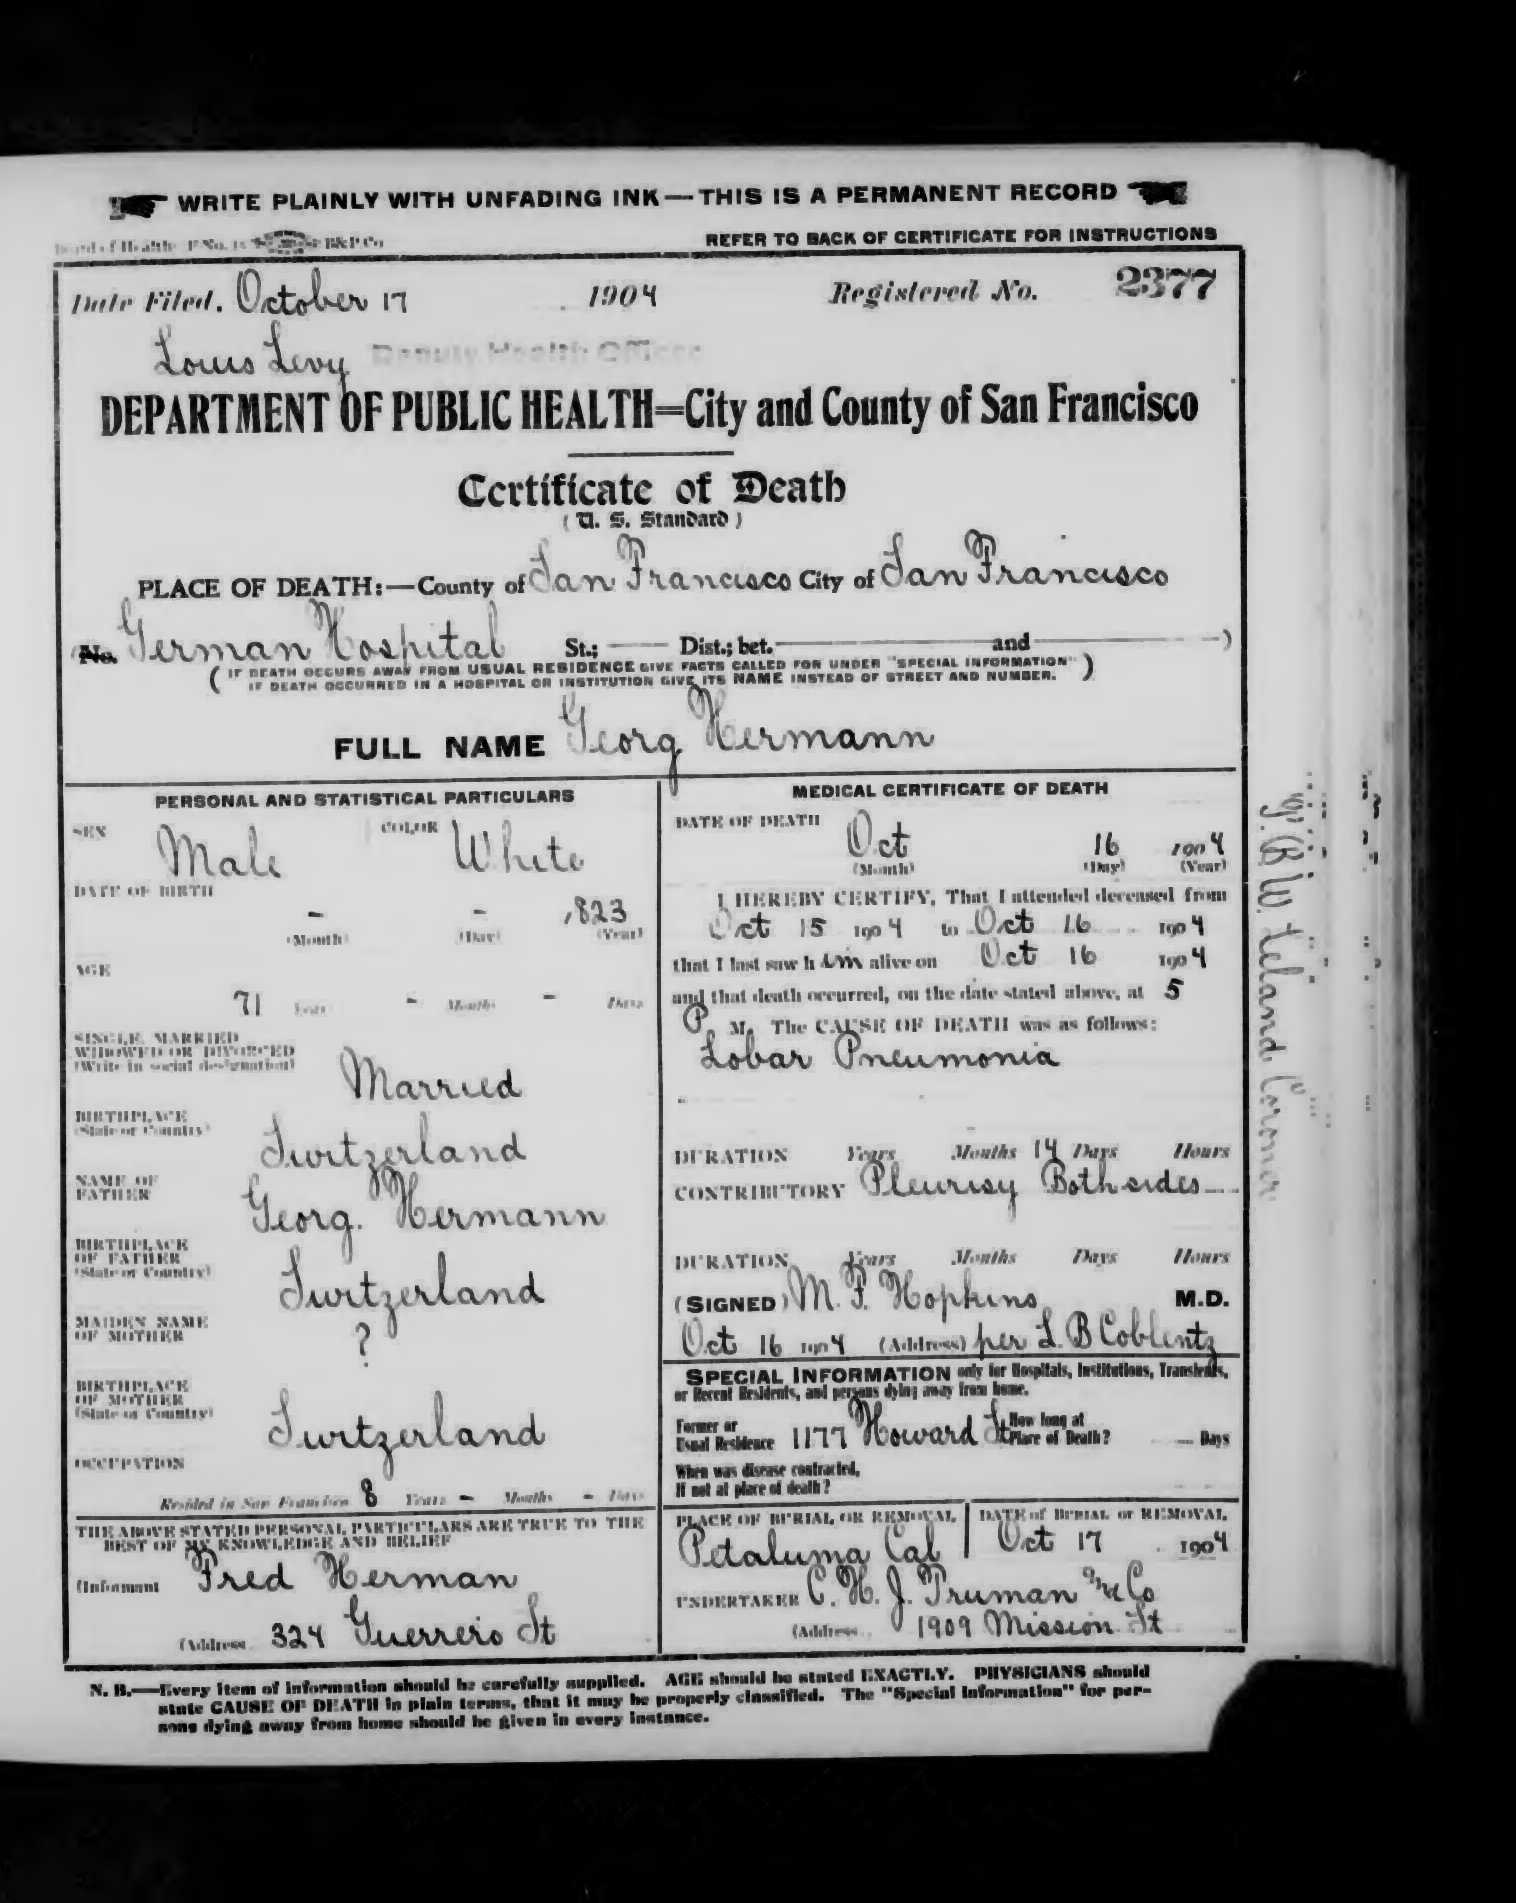 WRITE PLAINLY WITH UNFADING INK—THIS IS A PERMANENT RECORD
Board of Health P. No. 15 B&P Co
REFER TO BACK OF CERTIFICATE FOR INSTRUCTIONS
Date Filed. October 17 1904 Registered No. 2377
Louis Levy Deputy Health Officer
DEPARTMENT OF PUBLIC HEALTH=City and County of San Francisco
Certificate of Death
(U. S. Standard)
PLACE OF DEATH:—County of San Francisco City of San Francisco
(No. German Hospital St.; —— Dist.; bet. —— and ——)
(IF DEATH OCCURS AWAY FROM USUAL RESIDENCE GIVE FACTS CALLED FOR UNDER "SPECIAL INFORMATION"
IF DEATH OCCURRED IN A HOSPITAL OR INSTITUTION GIVE ITS NAME INSTEAD OF STREET AND NUMBER.)
FULL NAME Georg Hermann
PERSONAL AND STATISTICAL PARTICULARS
SEX Male COLOR White
DATE OF BIRTH
- - 1823
(Month) (Day) (Year)
AGE
71 Years - Months - Days
SINGLE, MARRIED
WIDOWED OR DIVORCED
(Write in social designation)
Married
BIRTHPLACE
(State or Country)
Switzerland
NAME OF
FATHER
Georg. Hermann
BIRTHPLACE
OF FATHER
(State or Country)
Switzerland
MAIDEN NAME
OF MOTHER
?
BIRTHPLACE
OF MOTHER
(State or Country)
Switzerland
OCCUPATION
Resided in San Francisco 8 Years - Months - Days
THE ABOVE STATED PERSONAL PARTICULARS ARE TRUE TO THE
BEST OF MY KNOWLEDGE AND BELIEF
(Informant Fred Herman
(Address 324 Guerrero St
MEDICAL CERTIFICATE OF DEATH
DATE OF DEATH
Oct 16 1904
(Month) (Day) (Year)
I HEREBY CERTIFY, That I attended deceased from
Oct 15 1904 to Oct 16 1904
that I last saw h im alive on Oct 16 1904
and that death occurred, on the date stated above, at 5
P. M. The CAUSE OF DEATH was as follows:
Lobar Pneumonia
DURATION Years Months 14 Days Hours
CONTRIBUTORY Pleurisy Both sides
DURATION Years Months Days Hours
(SIGNED) M. F. Hopkins M.D.
Oct 16 1904 (Address) per L. B Coblentz
SPECIAL INFORMATION only for Hospitals, Institutions, Transients,
or Recent Residents, and persons dying away from home.
Former or
Usual Residence 1177 Howard St How long at
Place of Death? — Days
When was disease contracted,
If not at place of death?
PLACE OF BURIAL OR REMOVAL DATE of BURIAL or REMOVAL
Petaluma Cal Oct 17 1904
UNDERTAKER C. H. J. Truman and Co
(Address 1909 Mission St
N. B.—Every item of information should be carefully supplied. AGE should be stated EXACTLY. PHYSICIANS should
state CAUSE OF DEATH in plain terms, that it may be properly classified. The "Special Information" for per-
sons dying away from home should be given in every instance.
Leland. Coroner